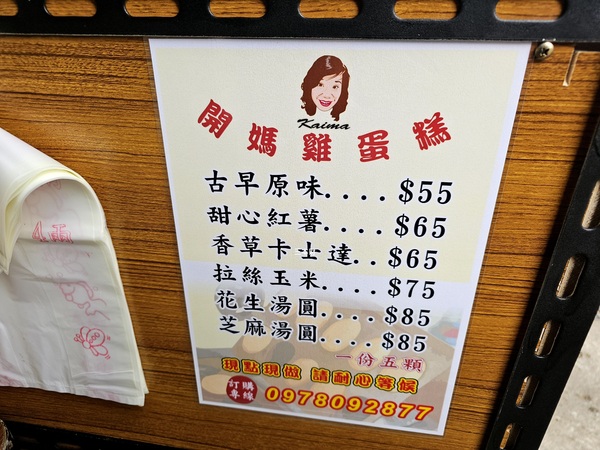 Kaima
開媽雞蛋糕
古早原味....$55
甜心紅薯....$65
香草卡士達..$65
拉絲玉米....$75
花生湯圓....$85
芝麻湯圓....$85
一份五顆
現點現做 請耐心等候
訂購專線 0978092877